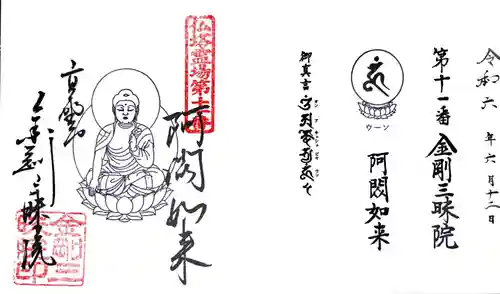 令和六年六月十二日
第十一番 金剛三昧院
ウーン
阿閦如来
御真言
仏塔霊場第十一番
阿閦如来
高野山
金剛三昧院
金剛三昧院